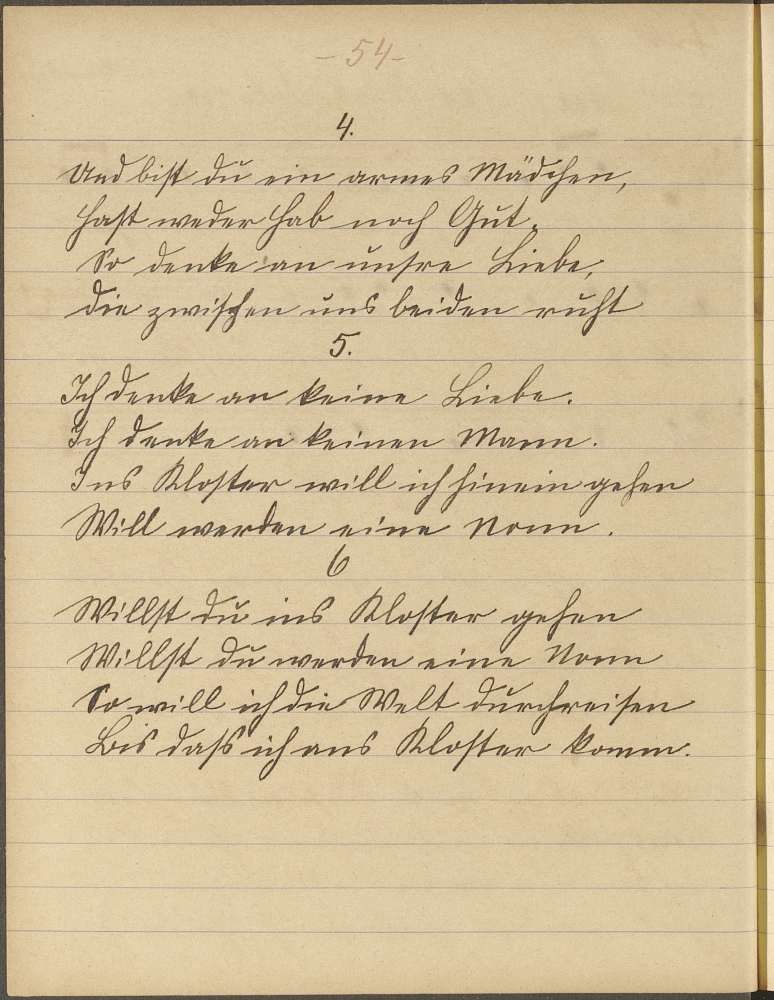 - 54 -
4.
Und bist du ein armes Mädchen,
Hast weder Hab noch Gut.
So denke an unsre Liebe,
Die zwischen uns beiden ruht
5.
Ich denke an keine Liebe.
Ich denke an keinen Mann.
Ins Kloster will ich hinein gehen
Will werden eine Nonn.
6
Willst du ins Kloster gehen
Willst du werden eine Nonn
So will ich die Welt durchreisen
Bis daß ich ans Kloster komm.